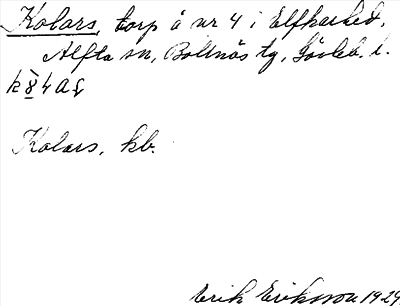 Kolars, torp å nr 4 i Elfkarhed,
Alfta sn, Bollnäs tg, Gävleb. l.
k 8 4 a g
Kolars, kb.
Erik Eriksson 1929